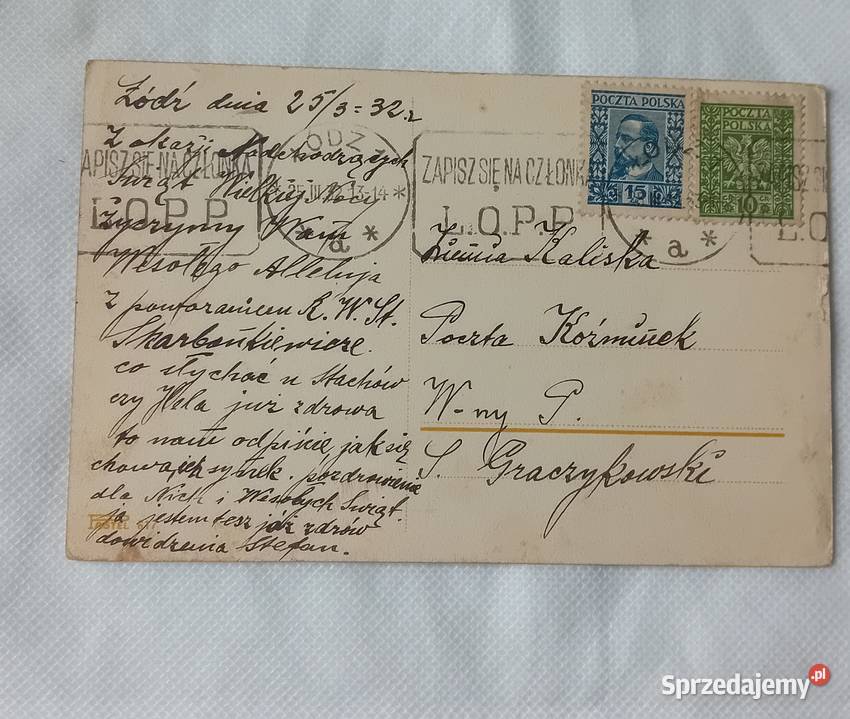 Łódź dnia 25/3 = 32 r
Z okazji Nadchodzących
Świąt Wielkiejnocy
Życzymy Wam
Wesołego Alleluja
Z powioraniem R. W. St.
Skarbonkiewicze.
co słychać u Stachów
czy Hela już zdrowa
to nam odpiście, jak się
chowa ich synek. pozdrowienie
dla Nich i Wesołych Świąt.
ja jestem też już zdrów
dowidzenia Stefan.
POCZTA POLSKA
15
POCZTA
POLSKA
10
ZAPISZ SIĘ NA CZŁONKA
L.O.P.P.
ŁÓDŹ 1
25.III.32.13-14
* a *
ZAPISZ SIĘ NA CZŁONKA
L.O.P.P.
* a *
L.O
Ziemia Kaliska
Poczta Koźminek
W-ny P.
S. Graczykowski
Sprzedajemy.pl